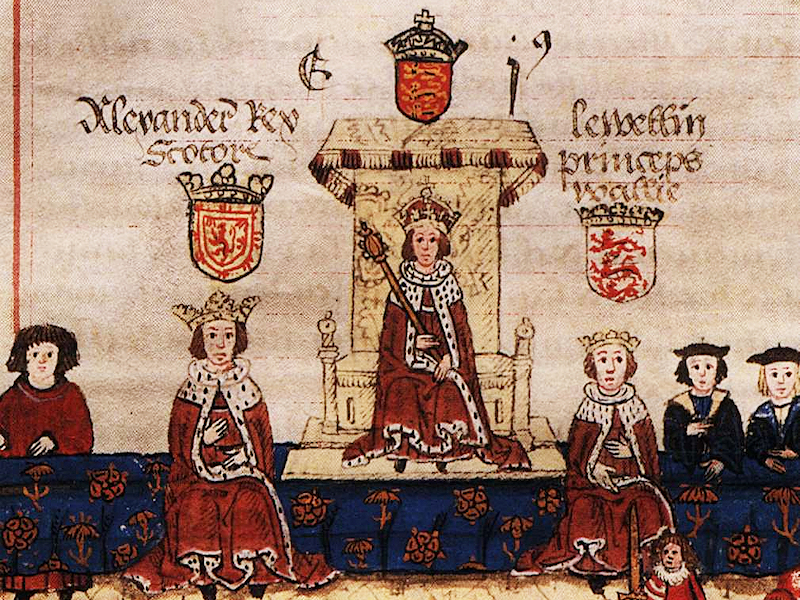 E 1⁹
Alexander Rex
Scotore
lewellin
princeps
wallie